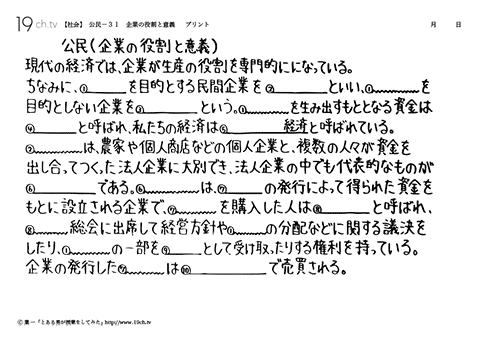 19ch.tv 【社会】 公民－３１ 企業の役割と意義 プリント 月 日
公民(企業の役割と意義)
現代の経済では、企業が生産の役割を専門的にになっている。
ちなみに、①____を目的とする民間企業を②______といい、①____を
目的としない企業を③______という。①____を生み出すもととなる資金は
④____と呼ばれ、私たちの経済は⑤______経済と呼ばれている。
②____は、農家や個人商店などの個人企業と、複数の人々が資金を
出し合ってつくった法人企業に大別でき、法人企業の中でも代表的なものが
⑥______である。⑥____は、⑦____の発行によって得られた資金を
もとに設立される企業で、⑦____を購入した人は⑧____と呼ばれ、
⑧____総会に出席して経営方針や①____の分配などに関する議決を
したり、①____の一部を⑨____として受け取ったりする権利を持っている。
企業の発行した⑦____は⑩________で売買される。
© 葉一「とある男が授業をしてみた」http://www.19ch.tv